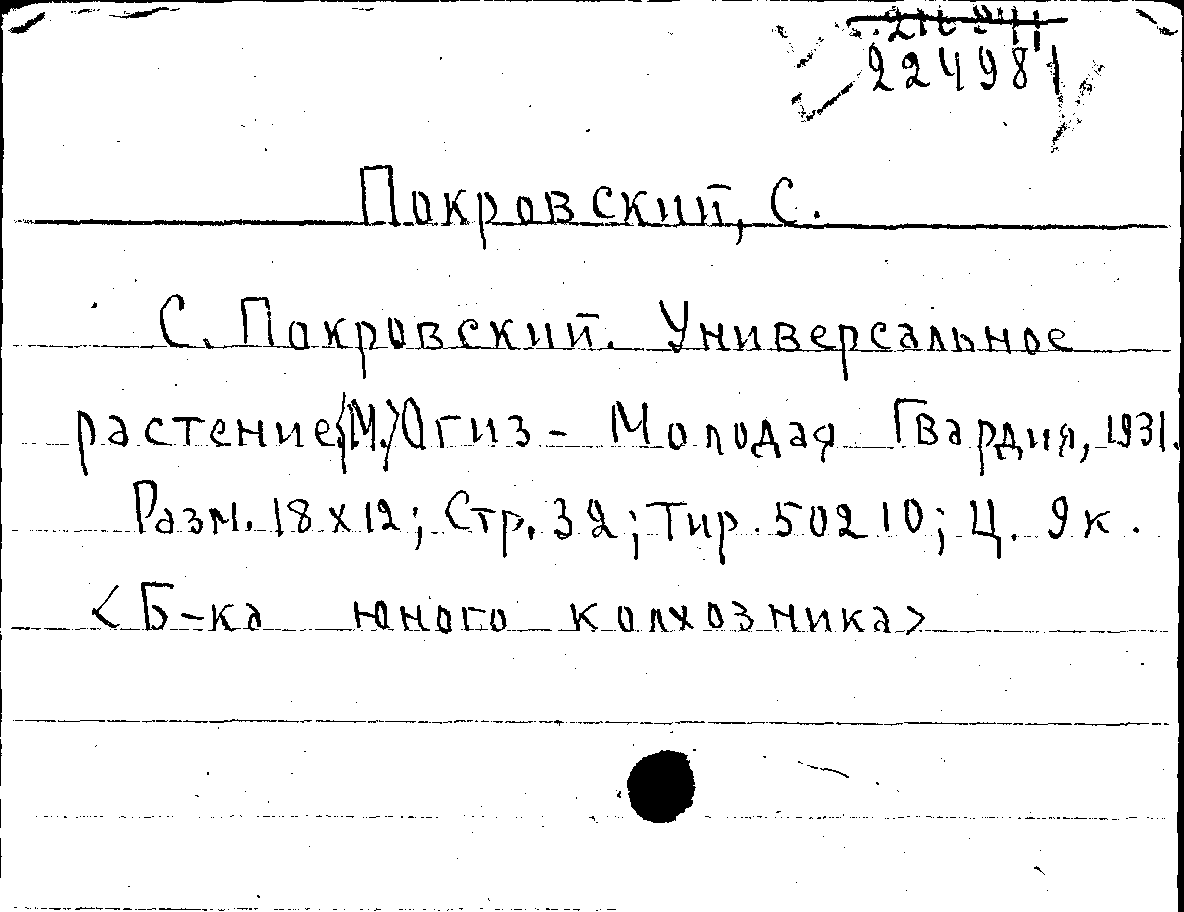 224981
Покровский, С.
С. Покровский. Универсальное
растение {М.} Огиз - Молодая Гвардия, 1931.
Разм. 18 х 12; Стр. 32; Тир. 50210; Ц. 9 к.
<Б-ка юного колхозника>